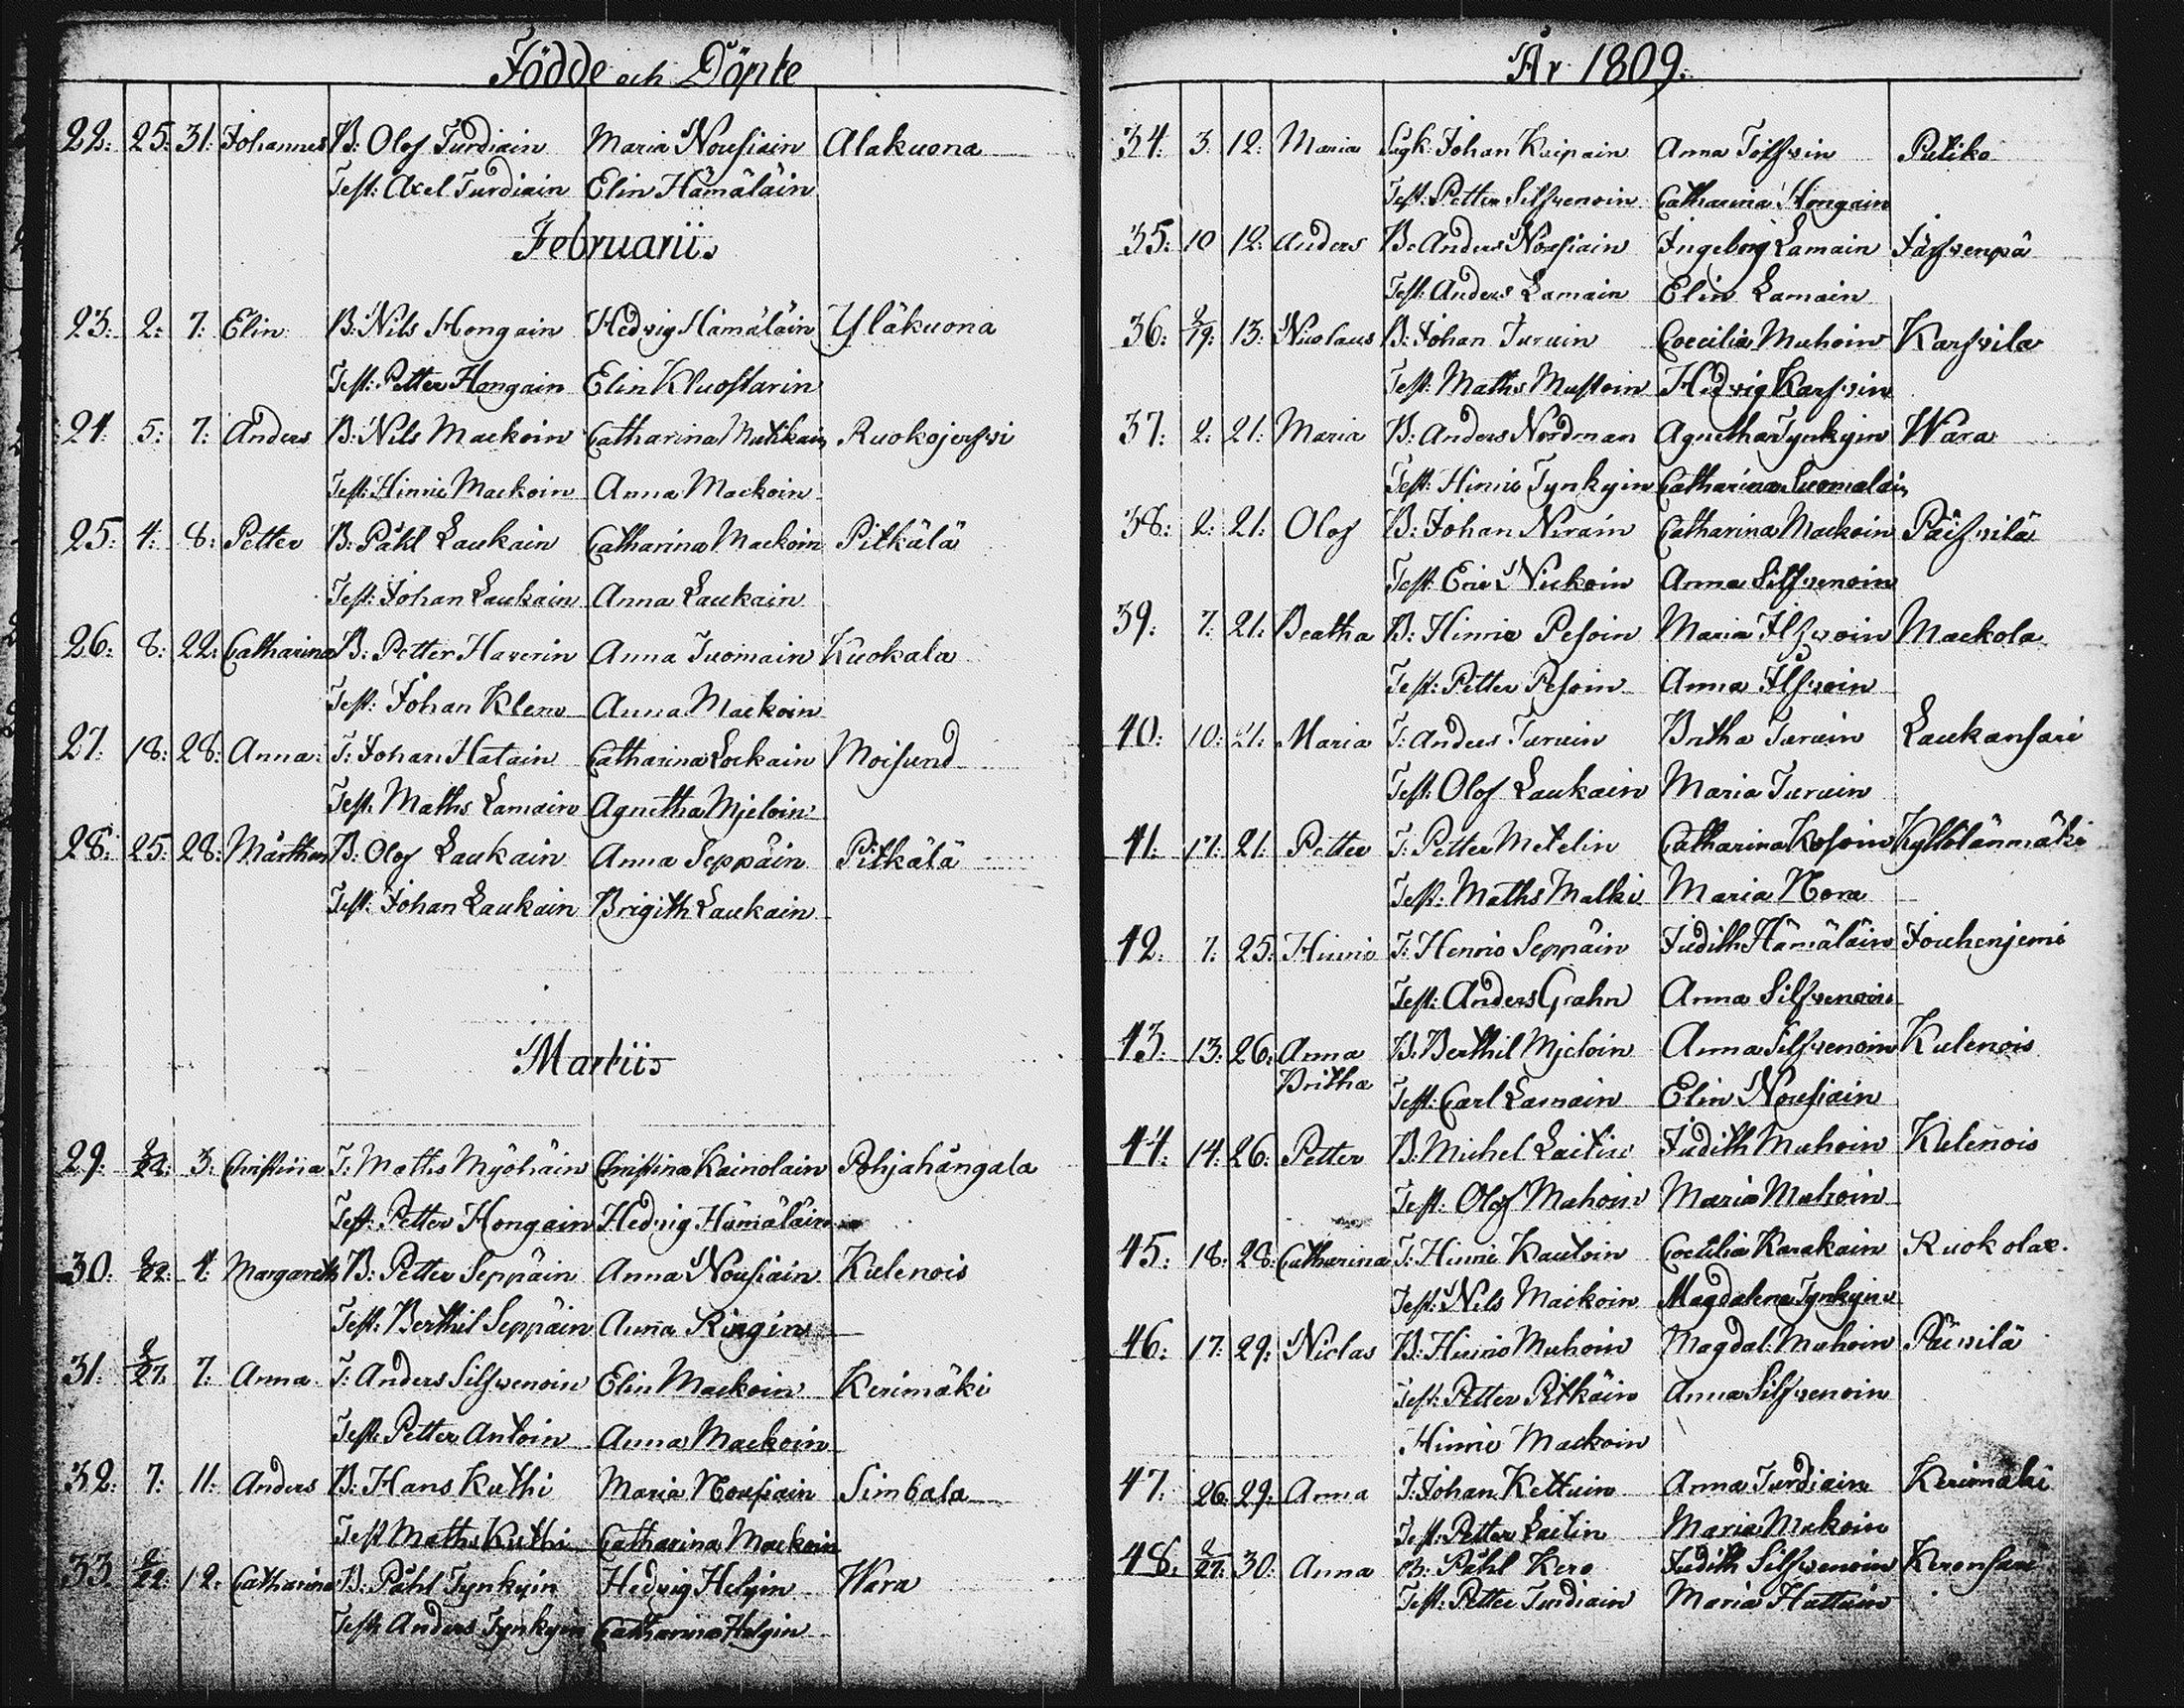 Födde och Döpte
22: 25: 31: Johannes B: Olof Turdiain Maria Nousiain Alakuona
Test: Axel Turdiain Elin Hämäläin
Februarii
23: 2: 7: Elin B: Nils Hongain Hedvig Hämäläin Yläkuona
Test: Petter Hongain Elin Kluostarin
24: 5: 7: Anders B: Nils Mackoin Catharina Mutikain Ruokojerfwi
Test: Hinric Mackoin Anna Mackoin
25: 4: 8: Petter B: Påhl Laukain Catharina Mackoin Pitkälä
Test: Johan Laukain Anna Laukain
26: 8: 22: Catharina B: Petter Haverin Anna Tuomain Kuokala
Test: Johan Klem Anna Mackoin
27: 18: 28: Anna: T: Johan Hatain Catharina Lockain Moisund
Test: Maths Lamain Agnetha Mjeloin
28: 25: 28: Marthin B: Olof Laukain Anna Seppäin Pitkälä
Test: Johan Laukain Brigith Laukain
Martii
29: 2/24: 3: Christina T: Maths Myöhäin Christina Kainolain Pohjahångala
Test: Petter Hongain Hedvig Hämäläin
30: 2/22: 4: Margareth B: Petter Seppäin Anna Nousiain Kulenois
Test: Berthil Seppäin Anna Ringin
31: 2/27: 7: Anna T: Anders Silfwenoin Elin Mackoin Kerimäki
Test: Petter Antoin Anna Mackoin
32: 7: 11: Anders B: Hans Kuthi Maria Nousiain Simbala
Test Maths Kuthi Catharina Mackoin
33: 2/22: 12: Catharina B: Påhl Tynkyin Hedvig Helgin Wara
Test: Anders Tynkyin Catharina Helgin
År 1809.
34: 3: 12: Maria Sqk: Johan Kaipain Anna Tolfwin Putiko
Test: Petter Silfvenoin Catharina Hongain
35: 10 12: Anders B: Anders Nousiain Ingeborg Lamain Järfvenpä
Test: Anders Lamain Elin Lamain
36: 2/19: 13: Nicolaus B: Johan Turuin Coecilia Muhoin Karfvila
Test: Maths Mustoin Hedvig Karfvin
37: 2: 21: Maria B: Anders Nordman Agnetha Tynkyin Wara
Test: Hinric Tynkyin Catharina Suomalain
38: 2: 21: Olof B: Johan Nirain Catharina Mackoin Päifvilä
Test: Eric Nickoin Anna Silfvenoin
39: 7: 21: Beatha B: Hinric Pesoin Maria Ilfwoin Mackola
Test: Petter Pesoin Anna Ilfvoin
40: 10: 21: Maria T: Anders Turuin Britha Turuin Laukansari
Test: Olof Laukain Maria Turuin
41: 17: 21: Petter T: Petter Metelin Catharina Kosoin Kyllölänmäki
Test: Maths Malki Maria Nora
42: 7: 25: Hinric T: Henric Seppäin Judith Hämäläin Jouhenjemi
Test: Anders Grahn Anna Silfvenoin
43: 13: 26: Anna B: Berthil Mjeloin Anna Silfvenoin Kulenois
Britha Test: Carl Lamain Elin Nousiain
44: 14: 26: Petter B: Michel Laitin Judith Muhoin Kulenois
Test: Olof Mahoin Maria Muhoin
45: 18: 28: Catharina T: Hinric Kautoin Coecilia Karakain Ruokolax.
Test: Nils Mackoin Magdalena Tynkyin
46: 17: 29: Niclas B: Hinric Muhoin Magdal: Muhoin Päivilä
Test: Petter Pitkäin Anna Silfvenoin
Hinric Mackoin
47: 26: 29: Anna T: Johan Kettuin Anna Turdiain Kerimäki
Test: Petter Laitin Maria Mukoin
48: 2/27: 30: Anna B: Påhl Kero Judith Silfwenoin Keronsari
Test: Petter Turdiain Maria Hattuin